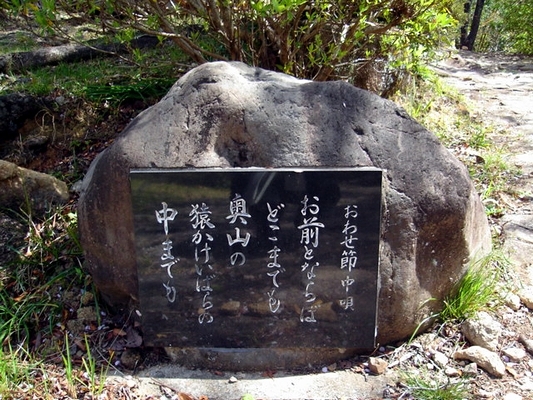 おわせ節中唄
お前とならば
どこまでも
奥山の
猿かけいばらの
中までも